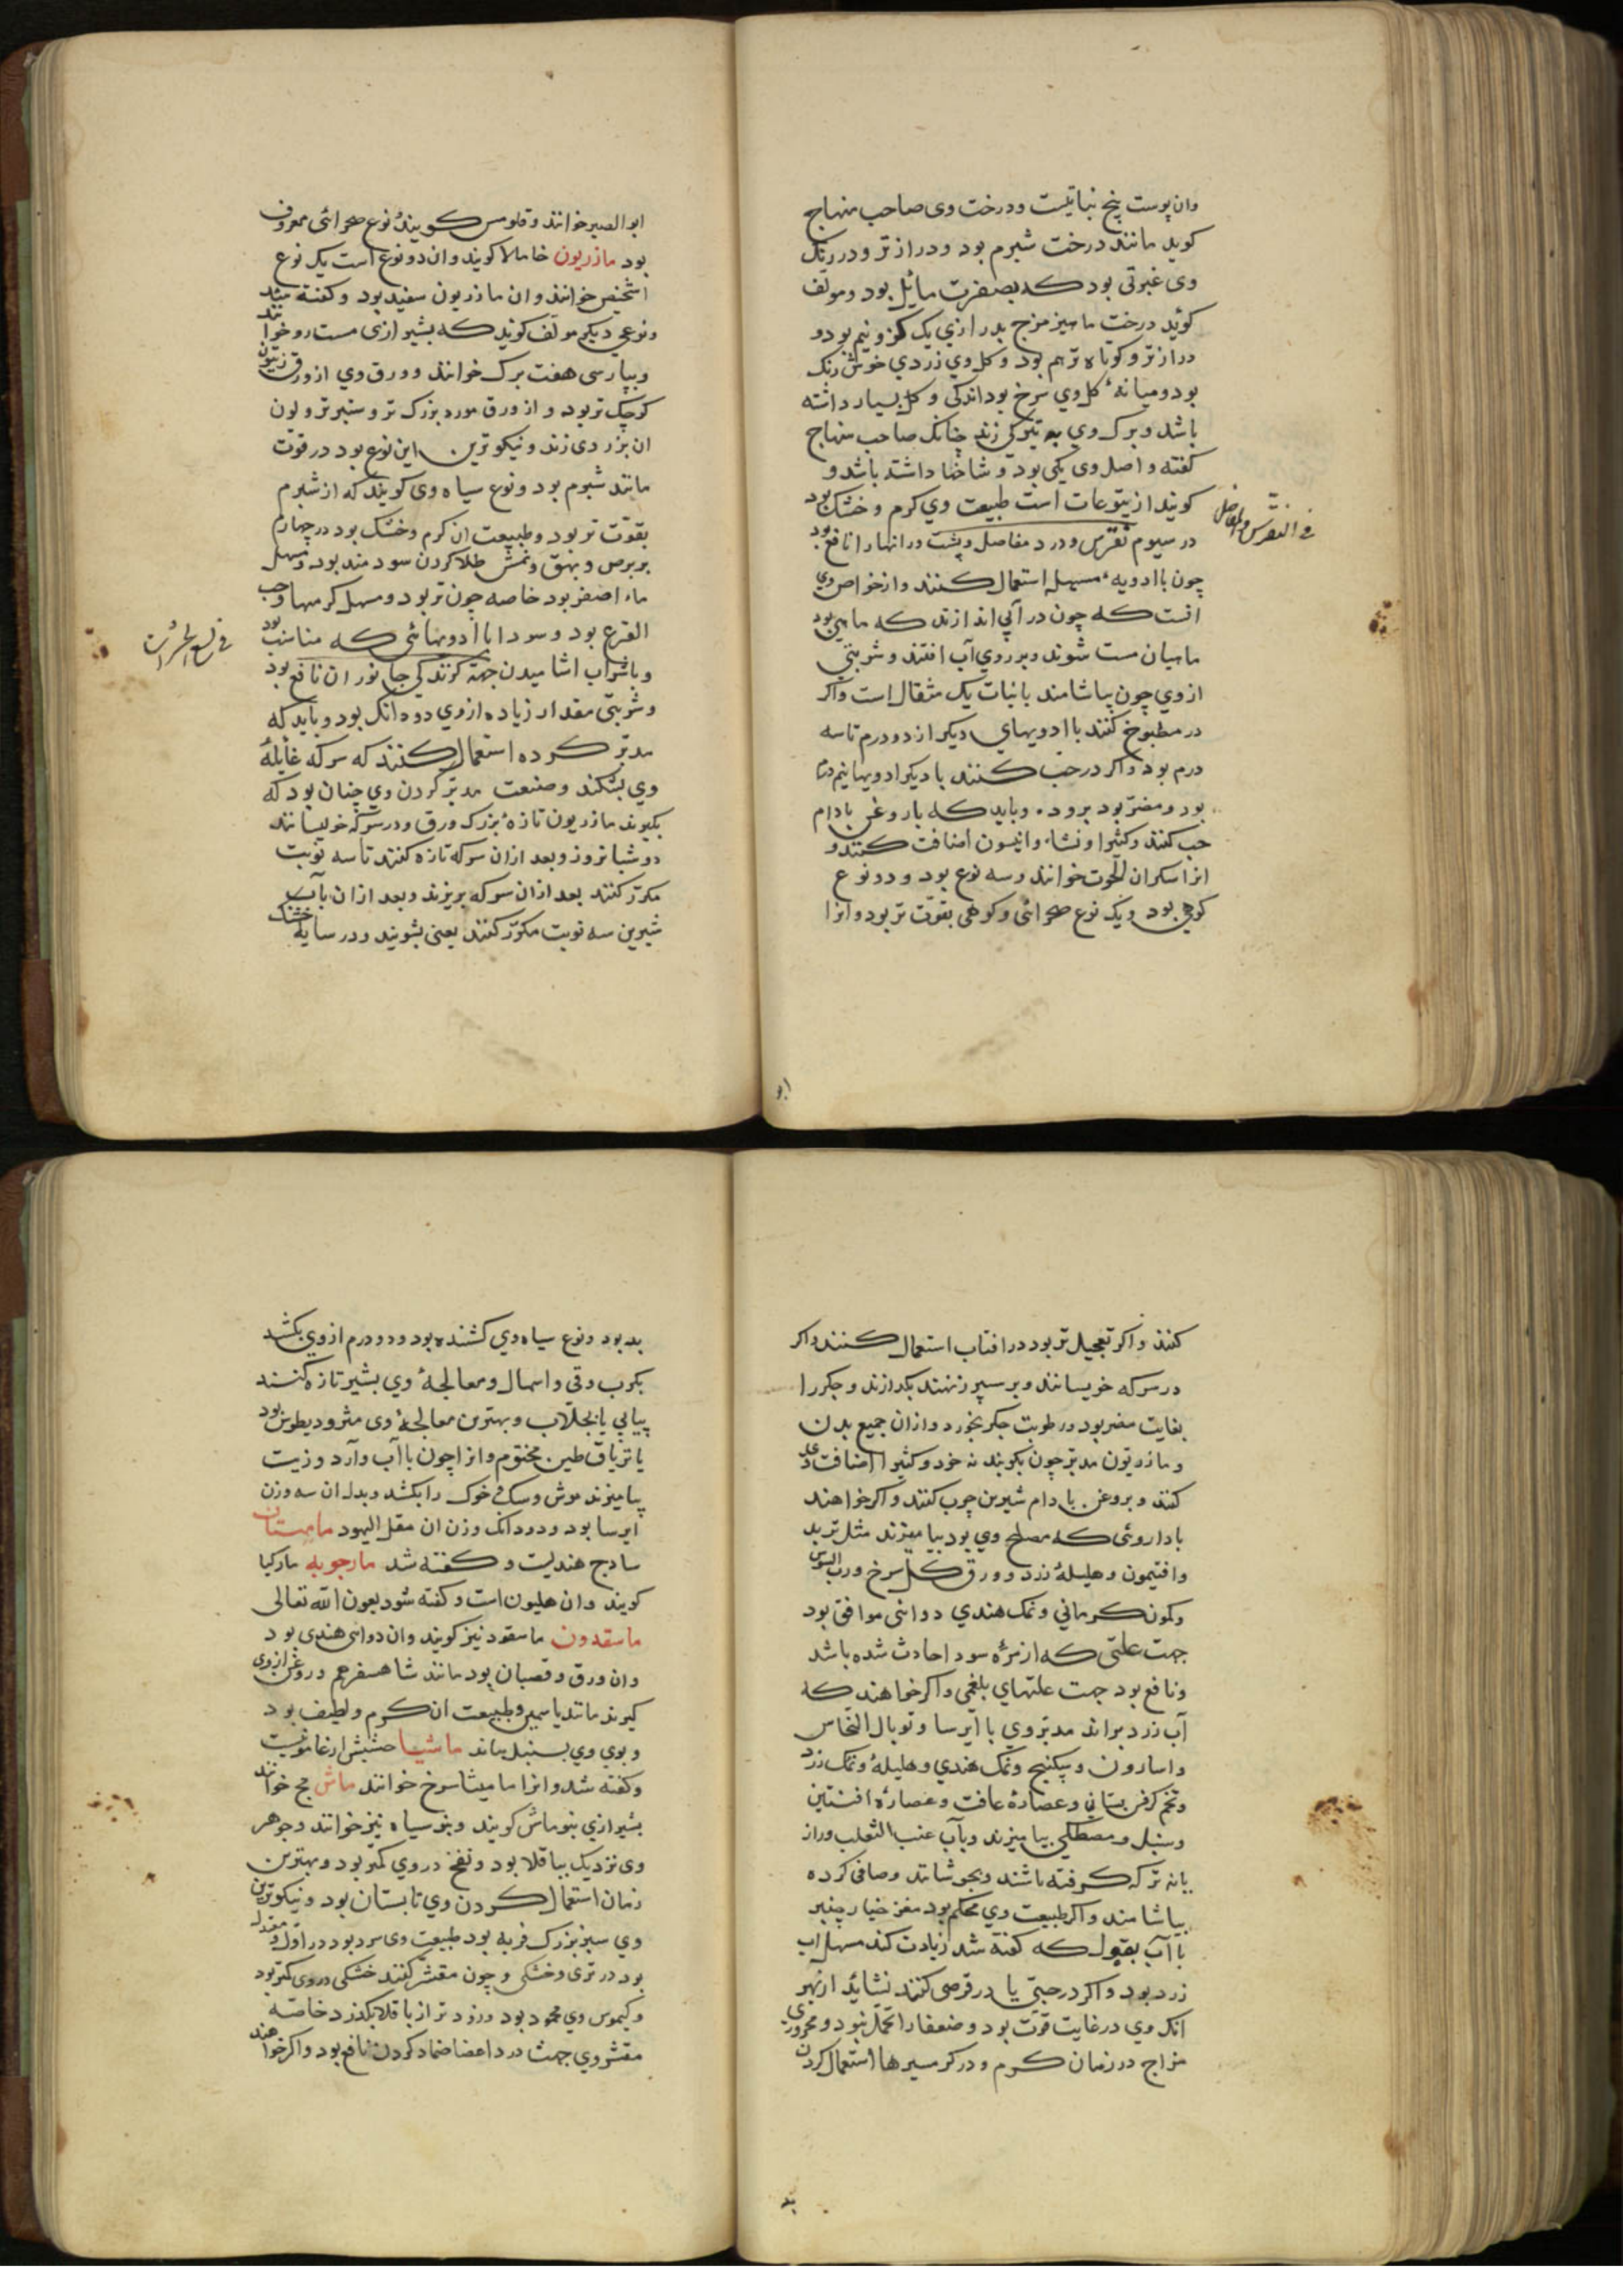 وان پوست بیخ نباتیست ودرخت وی صاحب منهاج
کوید مانند درخت شبرم بود ودراز تر ودر رنک
وی غبرتی بود که بصفرت مایل بود ومولف
کوید درخت ماهیزمزج بدرازی یک کز ونیم بود و
دراز تر وکوتاه تر هم بود وکل وی زردی خوش رنک
بود ومیانهٔ کل وی سرخ بود اندکی وکل بسیار داشته
باشد وبرک وی به تیرکی زند چنانک صاحب منهاج
کفته واصل وی یکی بود وشاخها داشته باشد و
کویند از یتوعات است طبیعت وی کرم وخشک بود
در سیوم نقرس ودرد مفاصل وپشت ورانها را نافع بود
فی النقرس والمفاصل
چون باادویهٔ مسهله استعمال کنند واز خواص وی
انست که چون در آبی اندازند که ماهی بود
ماهیان مست شوند وبرروی آب افتند وشربتی
از وی چون بیاشامند بانبات یک مثقال است واکر
در مطبوخ کنند باادویهای دیکر از دو درم تا سه
درم بود واکر در حب کنند با دیکر ادویها نیم درم
بود ومضر بود بروده وباید که باروغن بادام
چرب کنند وکثیرا ونشاء وانیسون اضافت کنند و
انرا سکران الحوت خوانند وسه نوع بود ودو نوع
کوهی بود ویک نوع صحرائی وکوهی بقوت تر بود وانرا
ابو
ابوالصیر خوانند وقلومس کویند ونوع صحرائی معروف
بود مازریون خامالا کویند وان دو نوع است یک نوع
اشخیص خوانند وان مازریون سفید بود وکفته شد
ونوعی دیکر مولف کوید که بشیرازی مست رو خوانند
وبپارسی هفت برک خوانند وورق وی از ورق زیتون
کوچک تر بود واز ورق مورد بزرک تر وستبر تر ولون
ان بزردی زند ونیکوترین این نوع بود در قوت
مانند شبرم بود ونوع سیاه وی کویند که از شبرم
بقوت تر بود وطبیعت ان کرم وخشک بود در چهارم
بر برص وبهق ونمش طلا کردن سودمند بود ومسهل
ماء اصفر بود خاصه چون تر بود ومسهل کرمها وحب
القرع بود وسودا باادویهائی که مناسب بود
وباشراب اشامیدن جهة کزندکی جانوران نافع بود
وشربتی مقدار زیاده از وی دو دانک بود وباید که
مدبر کرده استعمال کنند که سرکه غایلهٔ
وی بشکند وصنعت مدبر کردن وی چنان بود که
بکیرند مازریون تازهٔ بزرک ورق ودر سرکه خویسانند
دو شبانروز وبعد ازان سرکه تازه کنند تا سه نوبت
مکرر کنند بعد ازان سرکه بریزند وبعد ازان بآب
شیرین سه نوبت مکرر کنند یعنی بشویند ودر سایه خشک
کنند واکر تعجیل تر بود در افتاب استعمال کنند واکر
در سرکه خویسانند وبر سپرز نهند بکدازند وجکر را
بغایت مضر بود ورطوبت جکر بخورد وازان جمیع بدن
ومازریون مدبر چون بکویند نه خرد وکثیرا اضافت وی
کنند وبروغن بادام شیرین چرب کنند واکر خواهند
باداروئی که مصلح وی بود بیامیزند مثل تربد
وافتیمون وهلیلهٔ زرد وورق کل سرخ ورب السوس
وکمون کرمانی ونمک هندی دوائی موافق بود
جهت علتی که از مرهٔ سودا حادث شده باشد
ونافع بود جهت علتهای بلغمی واکر خواهند که
آب زرد براند مدبر وی با ایرسا وتوبال النحاس
واسارون وسکبینج ونمک هندی وهلیلهٔ ونمک زرد
وتخم کرفس بستانی وعصارهٔ غافت وعصارهٔ افسنتین
وسنبل ومصطکی بیامیزند وبآب عنب الثعلب وراز
یانه تر که کرفته باشند وبجوشانند وصافی کرده
بیاشامند واکر طبیعت وی محکم بود مغز خیار چنبر
باآب بقول که کفته شد زیادت کند مسهل آب
زرد بود واکر در حبی یا در قرصی کنند نشاید از بهر
انک وی در غایت قوت بود وضعفا را تحمل نبود ومحروری
مزاج در زمان کرم ودر کرمسیرها استعمال کردن
بد
بد بود ونوع سیاه وی کشنده بود ودو درم از وی بکشد
بکرب وقی واسهال ومعالجهٔ وی بشیر تازه کنند
پیاپی یا بجلاب وبهترین معالجهٔ وی مثرودیطوس بود
یا تریاق طین مختوم وانرا چون باآب وآرد وزیت
بیامیزند موش وسک وخوک را بکشد وبدل ان سه وزن
ایرسا بود ودو دانک وزن ان مقل الیهود ماهستان
سادج هندیست وکفته شد مارجوبه مارکیا
کویند وان هلیون است وکفته شود بعون الله تعالی
ماسقدون ماسقود نیز کویند وان دوای هندی بود
وان ورق وقضبان بود مانند شاهسفرهم وروغن از وی
کیرند مانند یاسمین وطبیعت ان کرم ولطیف بود
وبوی وی بسنبل ماند ماشیا حشیش ارغامونیست
وکفته شد وانرا مامیثا سرخ خوانند ماش مج خوانند
بشیرازی بنو ماش کویند وبنو سیاه نیز خوانند وجوهر
وی نزدیک بباقلا بود ونفخ در وی کمتر بود وبهترین
زمان استعمال کردن وی تابستان بود ونیکوترین
وی سبز بزرک فربه بود طبیعت وی سرد بود در اول ومعتدل
بود در تری وخشکی وچون مقشر کنند خشکی در وی کمتر بود
وکیموس وی محمود بود وزود تر از باقلا بکذرد خاصه
مقشر وی جهت درد اعضا ضماد کردن نافع بود واکر خواهند